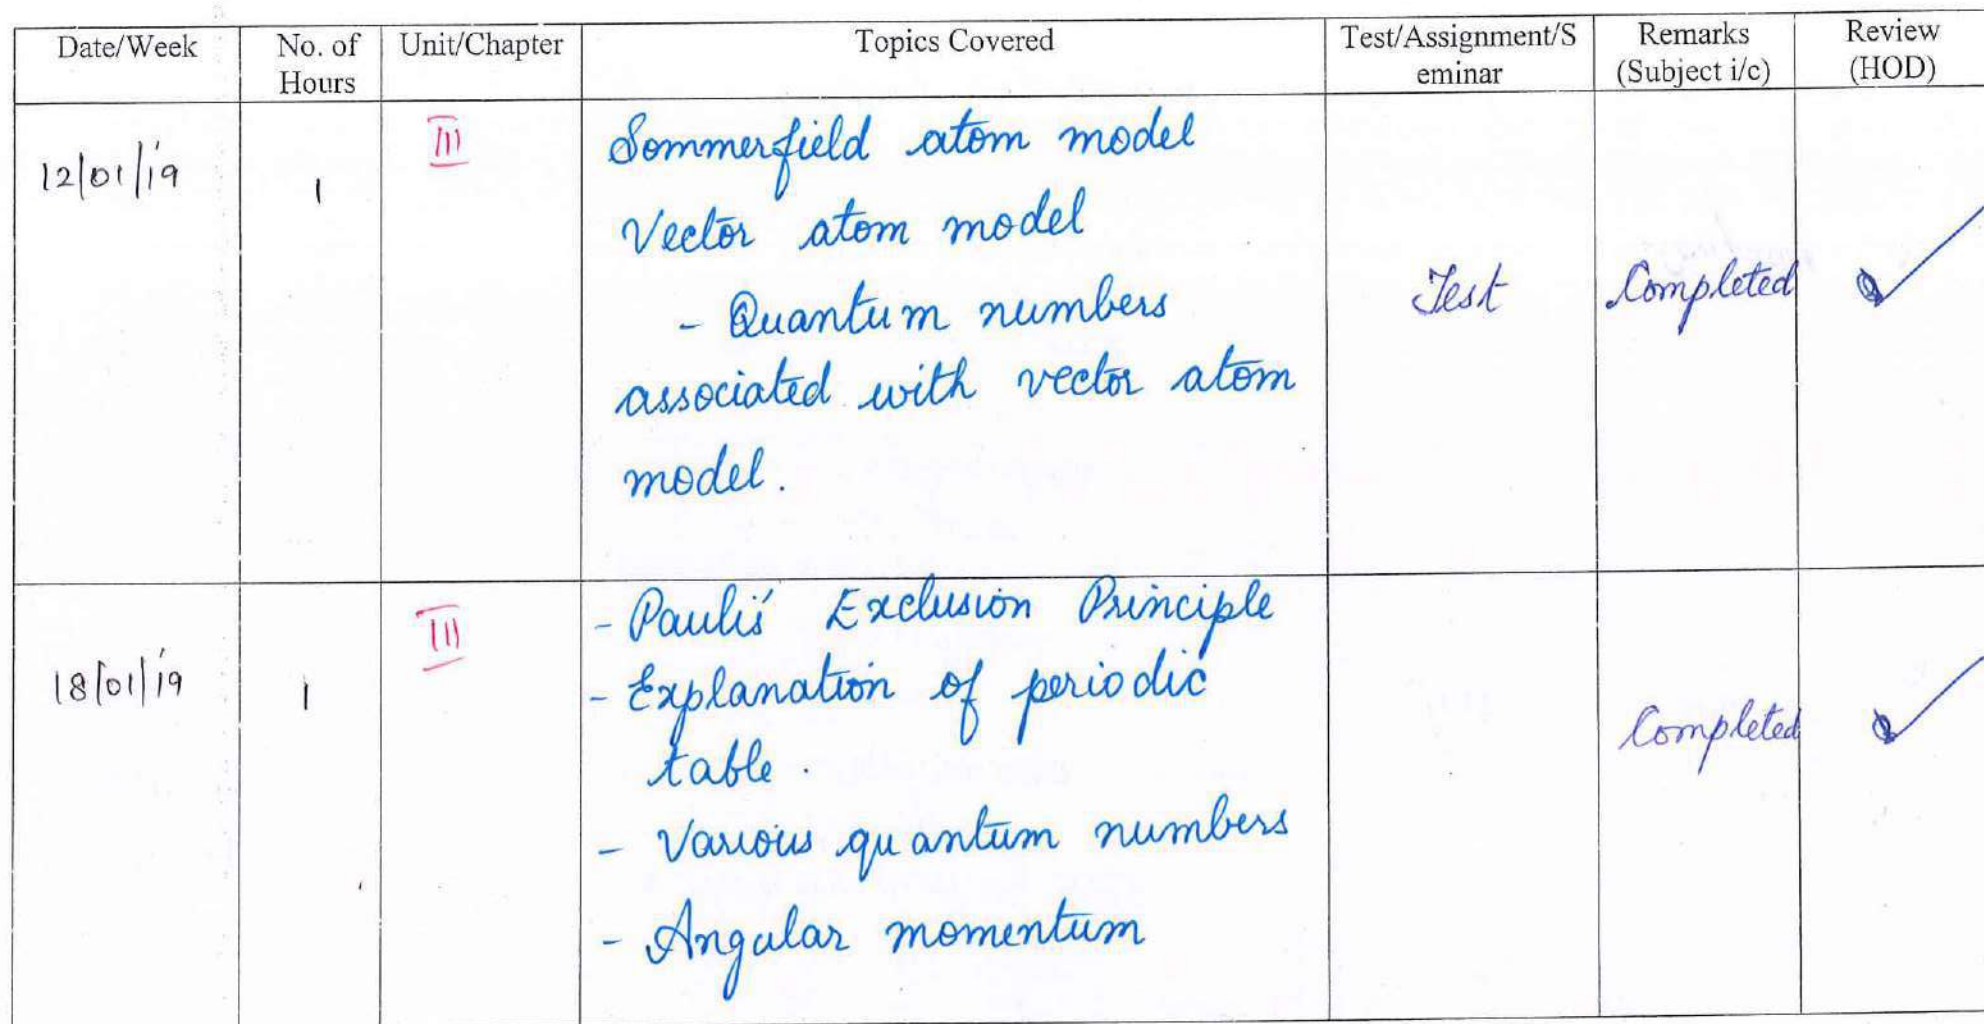 Date/Week No. of Hours Unit/Chapter Topics Covered Test/Assignment/S eminar Remarks (Subject i/c) Review (HOD)
12/01/19 1 III Sommerfield atom model
Vector atom model
- Quantum numbers
associated with vector atom
model.
Test Completed
18/01/19 1 III - Pauli's Exclusion Principle
- Explanation of periodic
table.
- Various quantum numbers
- Angular momentum
Completed